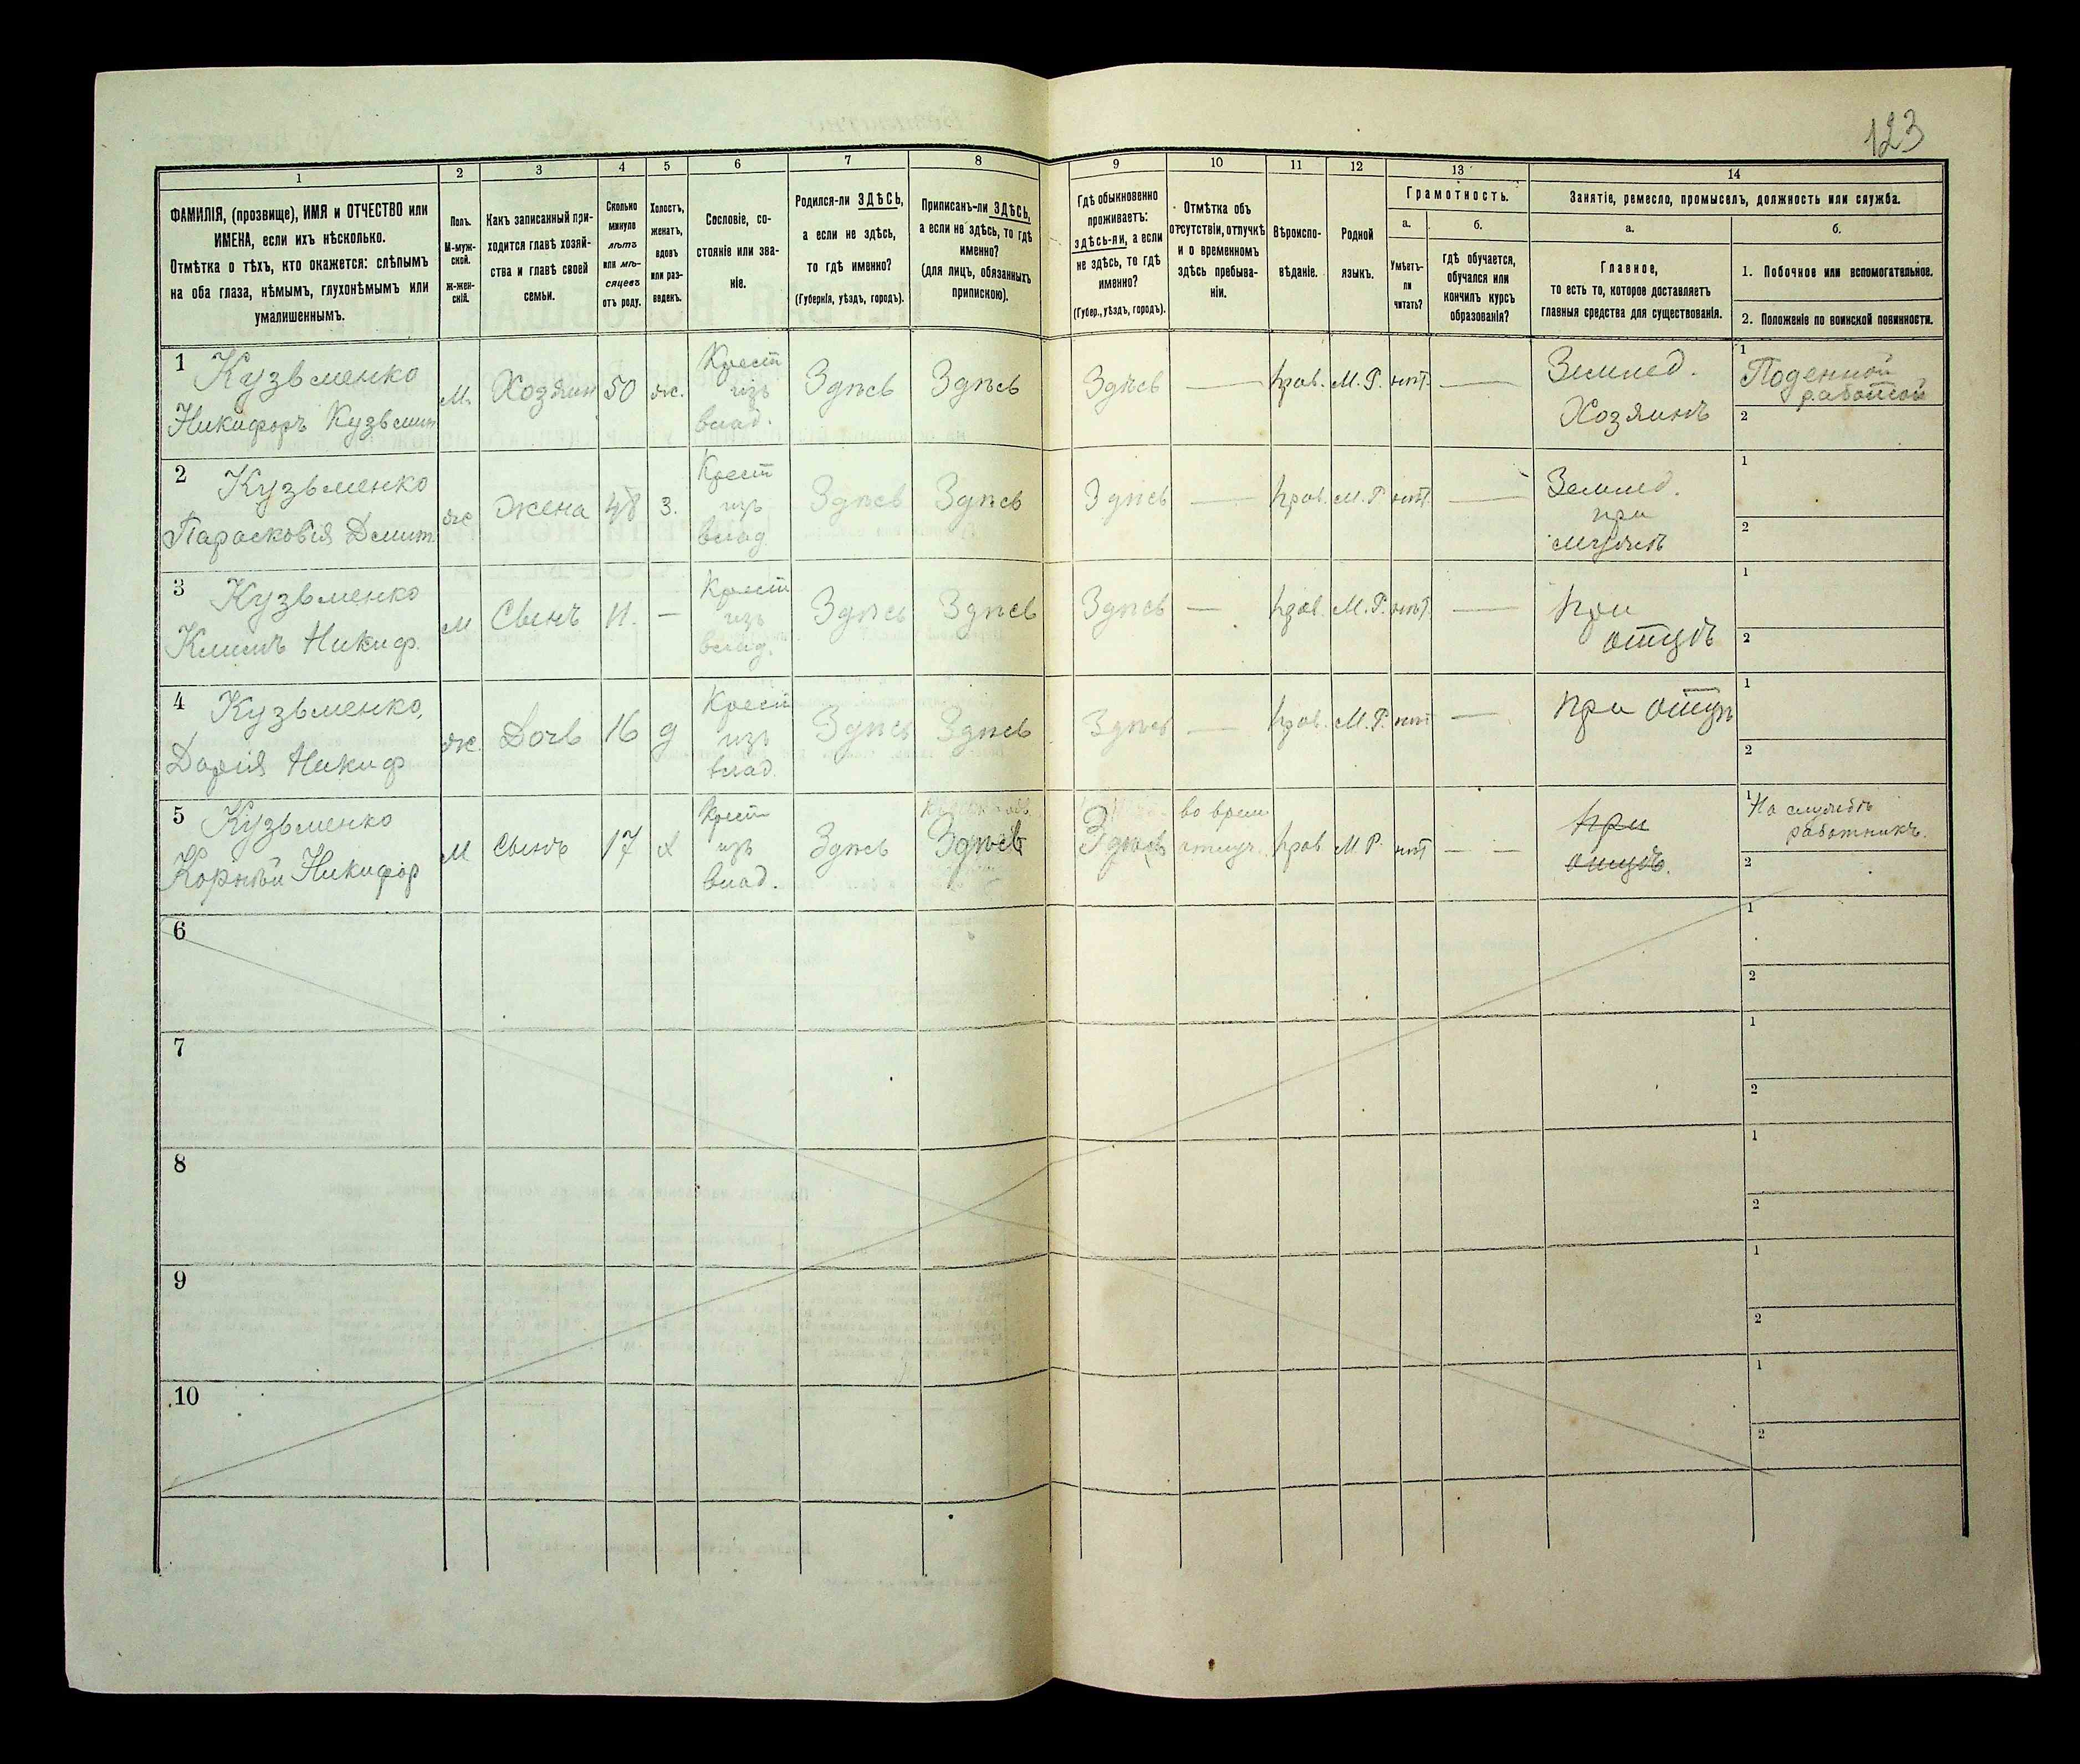 123
1
2
3
4
5
6
7
8
9
10
11
12
13
14
ФАМИЛІЯ, (прозвище), ИМЯ и ОТЧЕСТВО или
ИМЕНА, если ихъ нѣсколько.
Отмѣтка о тѣхъ, кто окажется: слѣпымъ
на оба глаза, нѣмымъ, глухонѣмымъ или
умалишеннымъ.
Полъ.
М-муж-
ской.
ж-жен-
скій.
Какъ записанный при-
ходится главѣ хозяй-
ства и главѣ своей
семьи.
Сколько
минуло
лѣтъ
или мѣ-
сяцевъ
отъ роду.
Холостъ,
женатъ,
вдовъ
или раз-
веденъ.
Сословіе, со-
стояніе или зва-
ніе.
Родился-ли ЗДѢСЬ,
а если не здѣсь,
то гдѣ именно?
(Губернія, уѣздъ, городъ).
Приписанъ-ли ЗДѢСЬ,
а если не здѣсь, то гдѣ
именно?
(для лицъ, обязанныхъ
припискою).
Гдѣ обыкновенно
проживаетъ:
ЗДѢСЬ-ЛИ, а если
не здѣсь, то гдѣ
именно?
(Губер., уѣздъ, городъ).
Отмѣтка объ
отсутствіи, отлучкѣ
и о временномъ
здѣсь пребыва-
ніи.
Вѣроиспо-
вѣданіе.
Родной
языкъ.
Грамотность.
а.
Умѣетъ-
ли
читать?
б.
гдѣ обучается,
обучался или
кончилъ курсъ
образованія?
Занятіе, ремесло, промыселъ, должность или служба.
а.
Главное,
то есть то, которое доставляетъ
главныя средства для существованія.
б.
1. Побочное или вспомогательное.
2. Положеніе по воинской повинности.
1
Кузьменко
Никифоръ Кузьмин
М.
Хозяин
50
ж.
Крест
изъ
влад.
Здѣсь
Здѣсь
Здѣсь
—
Прав.
М. Р.
нѣт.
—
Землед.
Хозяинъ
1
Поденной
работой
2
2
Кузьменко
Парасковія Дмит
ж
Жена
48
з.
Крест
изъ
влад
Здѣсь
Здѣсь
Здѣсь
—
Прав.
М. Р
нѣт.
—
Землед.
при
мужѣ
1
2
3
Кузьменко
Климъ Никиф.
М
Сынъ
11.
—
Крест
изъ
влад.
Здѣсь
Здѣсь
Здѣсь
—
Прав.
М. Р.
нѣт.
—
При
отцѣ
1
2
4
Кузьменко,
Дарія Никиф
ж.
Дочь
16
д
Крест
изъ
влад.
Здѣсь
Здѣсь
Здѣсь
—
Прав.
М. Р.
нѣт
—
При отцѣ
1
2
5
Кузьменко
Корнѣй Никифор
М
Сынъ
17
х
Крест
изъ
влад.
Здѣсь
Здѣсь
Здѣсь
во врем
отлуч.
Прав
М Р.
нѣт
— —
При
отцѣ.
1
На службѣ
работникъ.
2
6
1
2
7
1
2
8
1
2
9
1
2
10
1
2